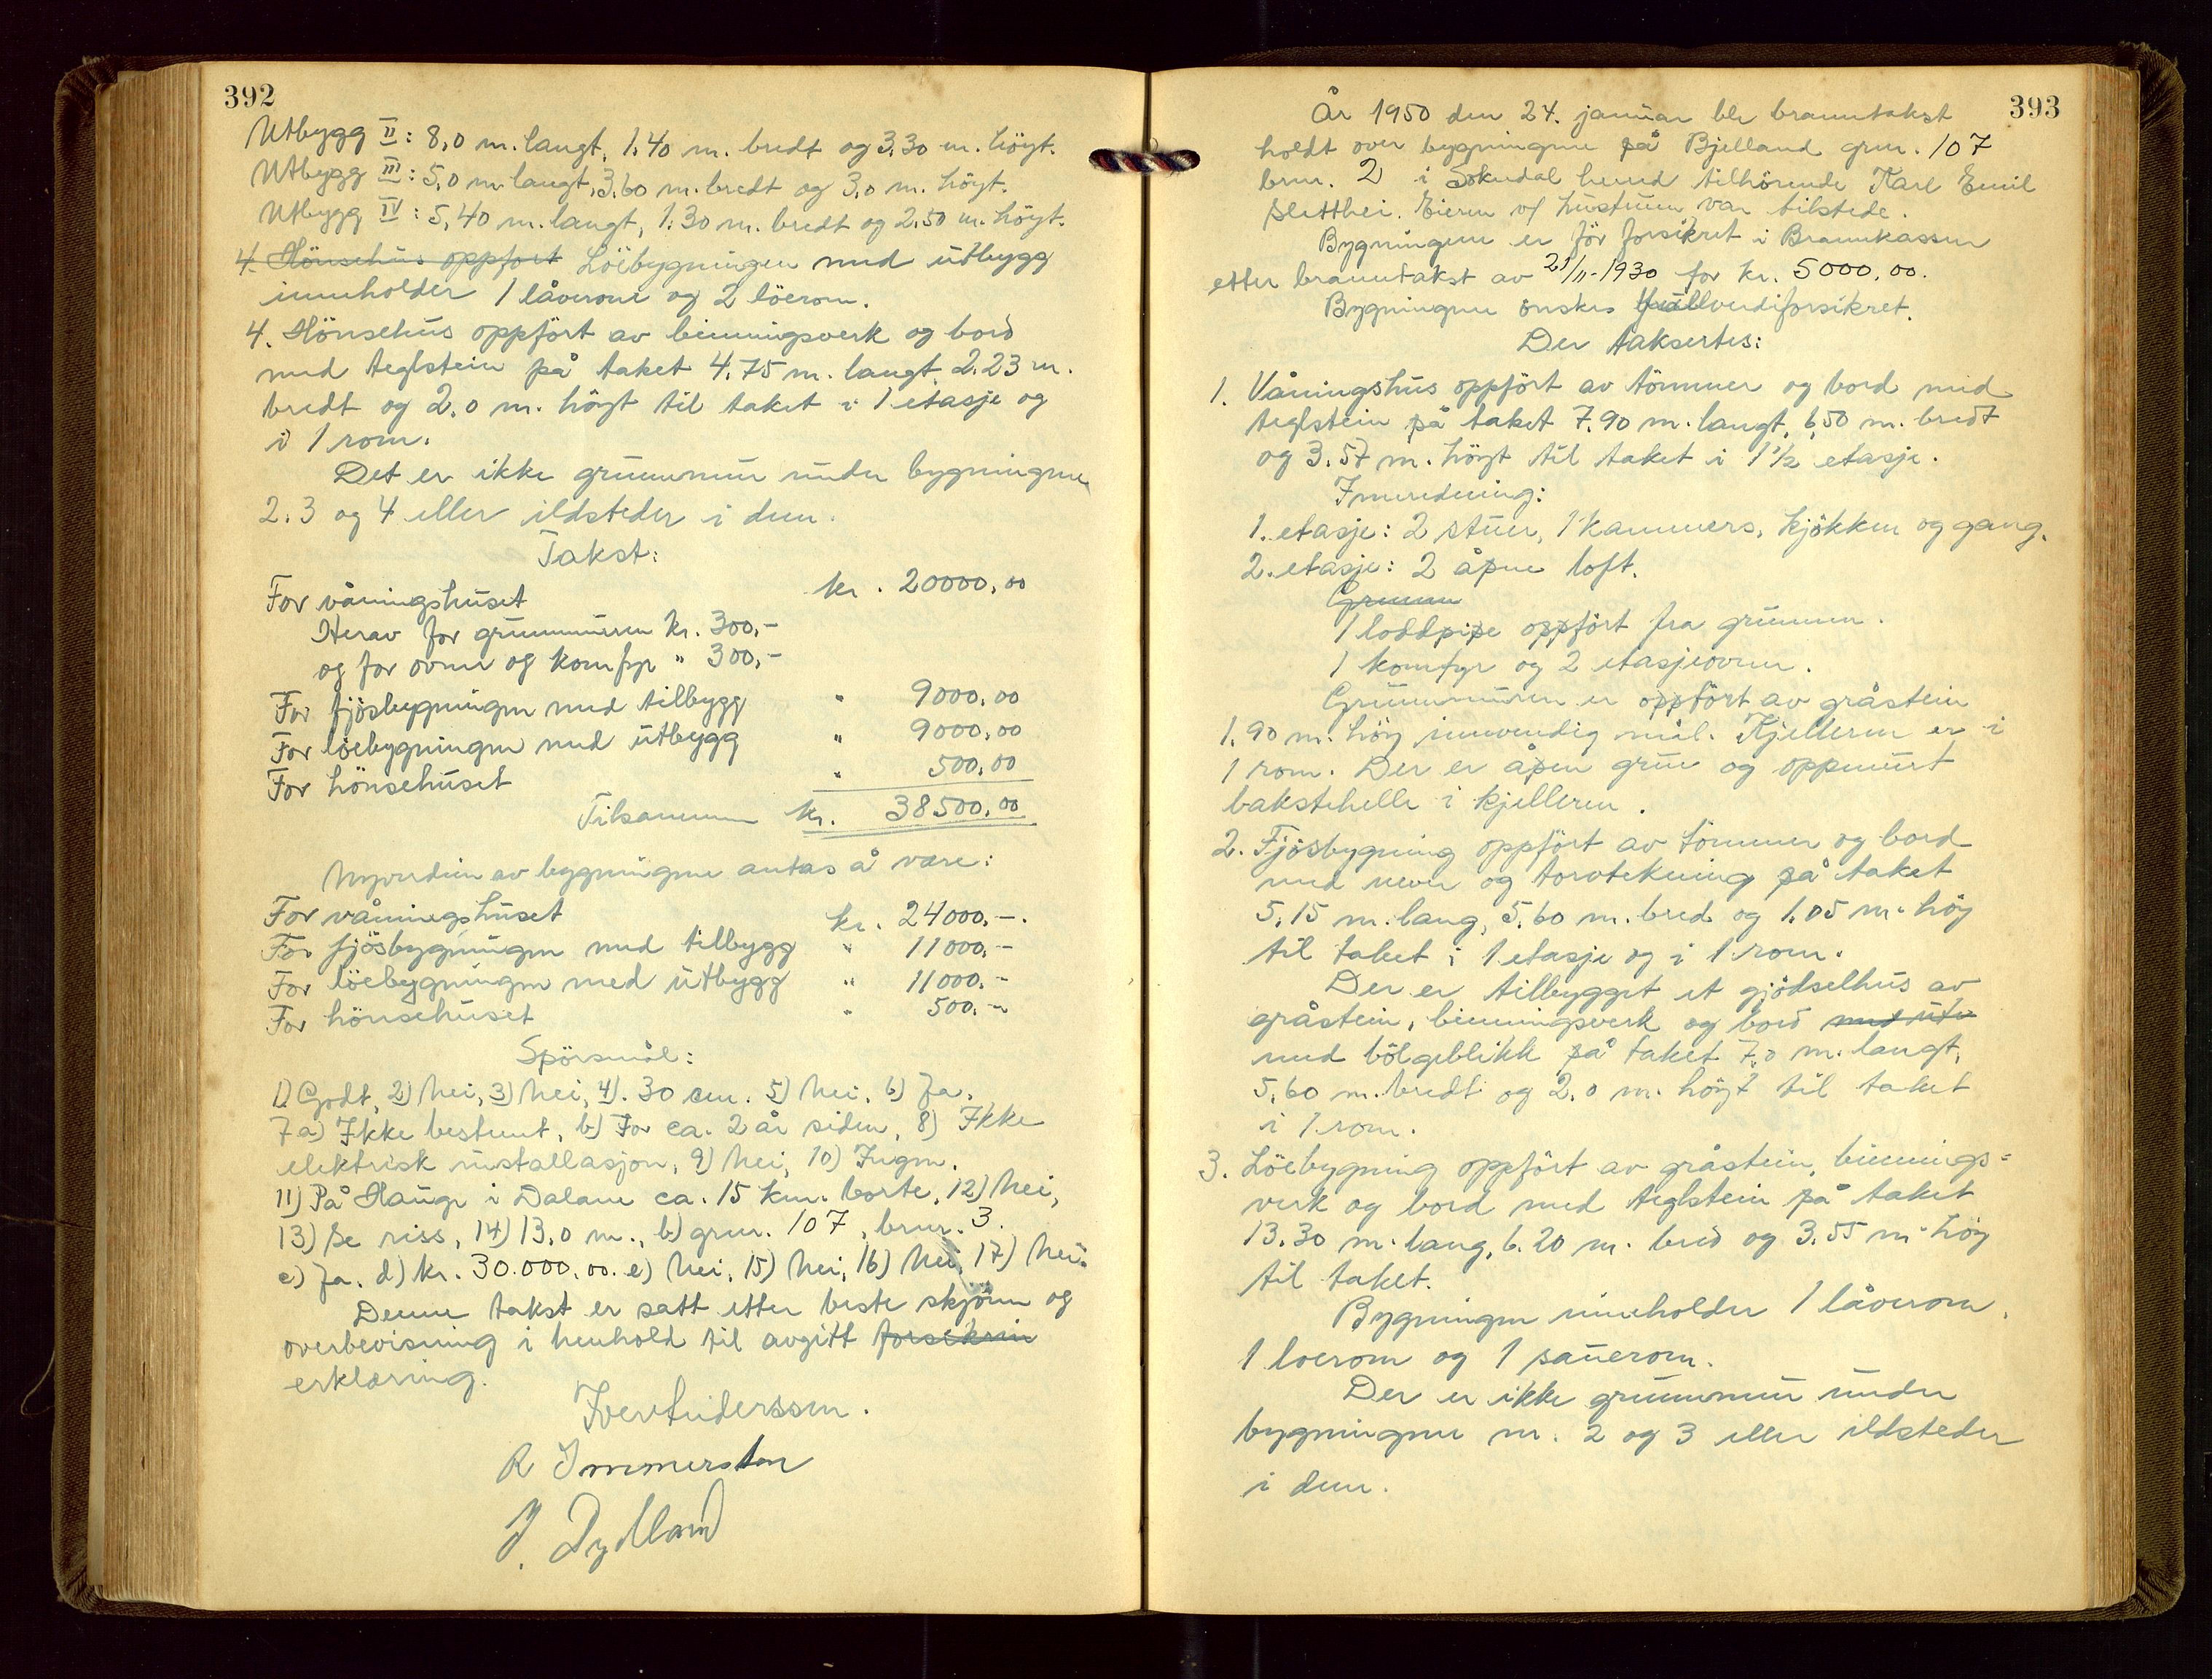 392
Utbygg II: 8,0 m. langt, 1,40 m. bredt og 3,30 m. höyt.
Utbygg III: 5,0 m. langt, 3,60 m. bredt og 3,0 m. höyt.
Utbygg IV: 5,40 m. langt, 1,30 m. bredt og 2,50 m. höyt.
4. Hönsehus oppfört Löebygningen med utbygg
inneholder 1 låverom og 2 löerom.
4. Hönsehus oppfört av binningsverk og bord
med teglstein på taket 4,75 m. langt, 2,23 m.
bredt og 2,0 m. höyt til taket i 1 etasje og
i 1 rom.
Det er ikke grunnmur under bygningene
2. 3 og 4 eller ildsteder i dem.
Takst:
For våningshuset kr. 20000,00
Herav for grunnmuren kr. 300,-
og for ovner og komfyr " 300,-
For fjösbygningen med tilbygg " 9000,00
For löebygningen med utbygg " 9000,00
For hönsehuset " 500,00
Tilsammen kr. 38500,00
Nyverdien av bygningene antas å være:
For våningshuset kr. 24000,-.
For fjösbygningen med tilbygg " 11000,-
For löebygningen med utbygg " 11000,-
For hönsehuset " 500,-
Spörsmål:
1) Godt, 2) Nei, 3) Nei, 4). 30 cm. 5) Nei, 6) Ja.
7 a) Ikke bestemt, b) For ca. 2 år siden, 8) Ikke
elektrisk installasjon, 9) Nei, 10) Ingen.
11) På Hauge i Dalane ca. 15 km. borte, 12) Nei,
13) Se riss, 14) 13,0 m., b) gnr. 107, bnr. 3.
c) Ja. d) kr. 30.000,00. e) Nei, 15) Nei, 16) Nei, 17) Nei.
Denne takst er satt etter beste skjönn og
overbevisning i henhold til avgitt forsikrin
erklæring.
R Immerstein
J. Dydland
393
År 1950 den 24. januar ble branntakst
holdt over bygningene på Bjelland gnr. 107
bnr. 2 i Sokndal herred tilhörende Karl Emil
Sletthei. Eieren v/ hustruen var tilstede.
Bygningene er för forsikret i Brannkassen
etter branntakst av 21/11-1930 for kr. 5000,00.
Bygningene önskes fullverdiforsikret.
Der taksertes:
1. Våningshus oppfört av tömmer og bord med
teglstein på taket 7,90 m. langt, 6,50 m. bredt
og 3,57 m. höyt til taket i 1 1/2 etasje.
Innredning:
1. etasje: 2 stuer, 1 kammers, kjökken og gang.
2. etasje: 2 åpne loft.
Grunn
1 loddpipe oppfört fra grunnen.
1 komfyr og 2 etasjeovner.
Grunnmuren er oppfört av gråstein
1,90 m. höy innvendig mål. Kjelleren er i
1 rom. Der er åpen grue og oppmurt
bakstehelle i kjelleren.
2. Fjösbygning oppfört av tömmer og bord
med never og torvtekning på taket
5,15 m. lang, 5,60 m. bred og 1,05 m. höy
til taket i 1 etasje og i 1 rom.
Der er tilbygget et gjödselhus av
gråstein, binningsverk og bord med utv
med bölgeblikk på taket 7,0 m. langt,
5,60 m. bredt og 2,0 m. höyt til taket
i 1 rom.
3. Löebygning oppfört av gråstein, binnings=
verk og bord med teglstein på taket
13,30 m. lang, 6,20 m. bred og 3,55 m. höy
til taket.
Bygningen inneholder 1 låverom,
1 loerom og 1 sauerom.
Der er ikke grunnmur under
bygningene nr. 2 og 3 eller ildsteder
i dem.